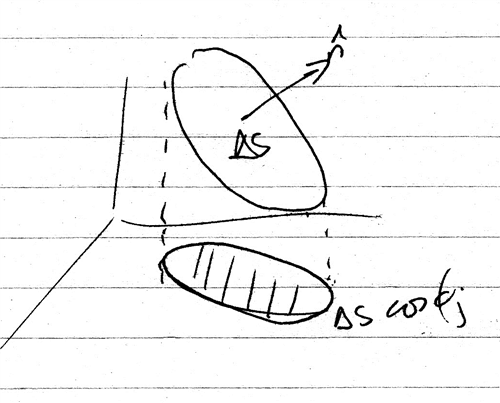 n̂
ΔS
ΔS cos ϕj